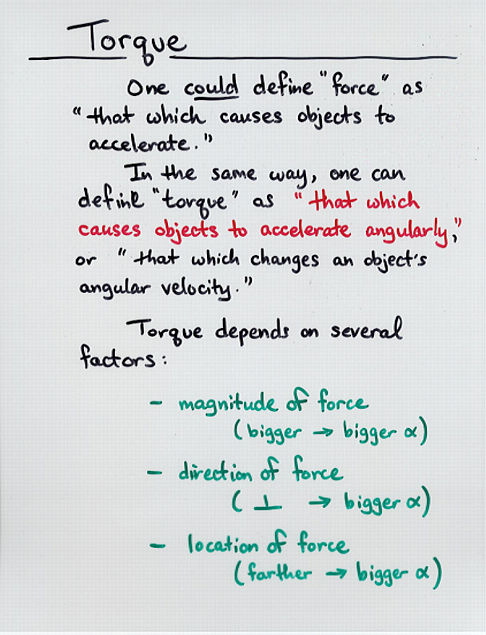 Torque
One could define "force" as
"that which causes objects to
accelerate."
In the same way, one can
define "torque" as "that which
causes objects to accelerate angularly,"
or "that which changes an object's
angular velocity."
Torque depends on several
factors:
- magnitude of force
(bigger → bigger α)
- direction of force
(⊥ → bigger α)
- location of force
(farther → bigger α)